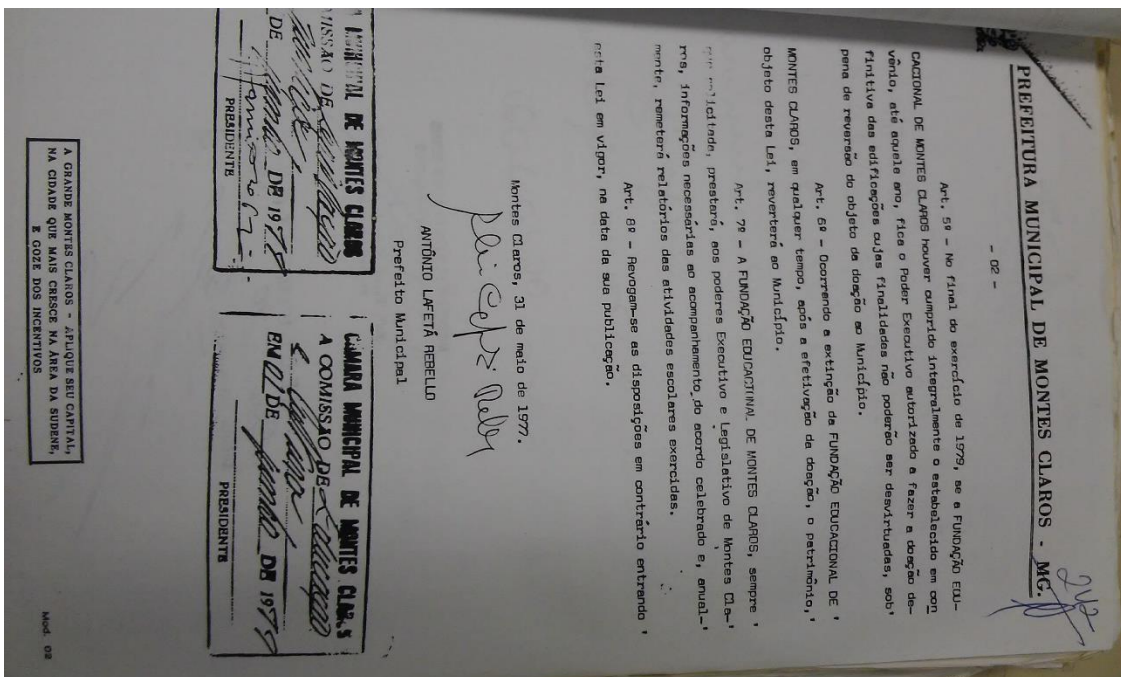 242
PREFEITURA MUNICIPAL DE MONTES CLAROS - MG.
- 02 -
Art. 5º - No final do exercício de 1979, se a FUNDAÇÃO EDU-
CACIONAL DE MONTES CLAROS houver cumprido integralmente o estabelecido em con
vênio, até aquele ano, fica o Poder Executivo autorizado a fazer a doação de-
finitiva das edificações cujas finalidades não poderão ser desvirtuadas, sob'
pena de reversão do objeto da doação ao Município.
Art. 6º - Ocorrendo a extinção da FUNDAÇÃO EDUCACIONAL DE '
MONTES CLAROS, em qualquer tempo, após a efetivação da doação, o patrimônio,'
objeto desta Lei, reverterá ao Município.
Art. 7º - A FUNDAÇÃO EDUCACIONAL DE MONTES CLAROS, sempre '
que solicitada, prestará, aos poderes Executivo e Legislativo de Montes Cla-'
ros, informações necessárias ao acompanhamento do acordo celebrado e, anual-'
mente, remeterá relatórios das atividades escolares exercidas.
Art. 8º - Revogam-se as disposições em contrário entrando '
esta Lei em vigor, na data da sua publicação.
Montes Claros, 31 de maio de 1977.
ANTÔNIO LAFETÁ REBELLO
Prefeito Municipal
MUNICIPAL DE MONTES CLAROS
MISSÃO DE Legislação
DE junho DE 197
PRESIDENTE
CÂMARA MUNICIPAL DE MONTES CLAR.S
A COMISSÃO DE Educação
e Cultura
EM 01 DE junho DE 197
PRESIDENTE
A GRANDE MONTES CLAROS - APLIQUE SEU CAPITAL,
NA CIDADE QUE MAIS CRESCE NA ÁREA DA SUDENE,
E GOZE DOS INCENTIVOS
Mod. 02